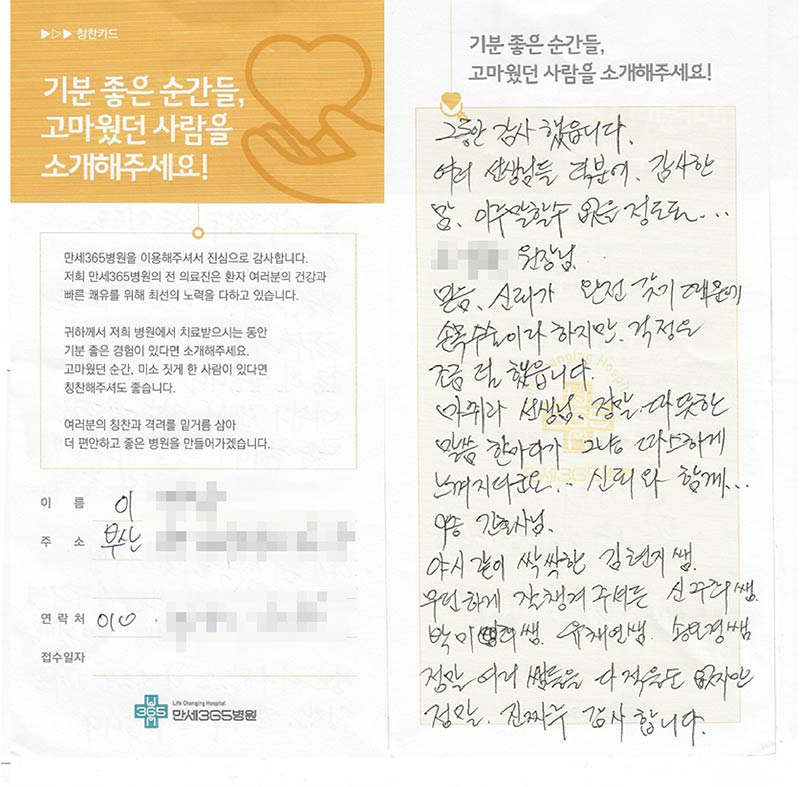 ▶▷▷ 칭찬카드
기분 좋은 순간들,
고마웠던 사람을
소개해주세요!
만세365병원을 이용해주셔서 진심으로 감사합니다.
저희 만세365병원의 전 의료진은 환자 여러분의 건강과
빠른 쾌유를 위해 최선의 노력을 다하고 있습니다.
귀하께서 저희 병원에서 치료받으시는 동안
기분 좋은 경험이 있다면 소개해주세요.
고마웠던 순간, 미소 짓게 한 사람이 있다면
칭찬해주셔도 좋습니다.
여러분의 칭찬과 격려를 밑거름 삼아
더 편안하고 좋은 병원을 만들어가겠습니다.
이 름 이
주 소 부산
연락처 010
접수일자
365
Life Changing Hospital
만세365병원
기분 좋은 순간들,
고마웠던 사람을 소개해주세요!
그동안 감사 했읍니다.
여러 선생님들 덕분에. 감사한
맘, 이루말할수 없을 정도로...
원장님.
믿음, 신뢰가 완전 갖기 때문에
손목수술이라 하지만. 걱정은
조금 덜 했읍니다.
마취과 선생님. 정말. 따뜻한
말씀 한마디가 그냥 따스하게
느껴지더군요... 신뢰와 함께...
9층 간호사님.
야시 같이 싹싹한 김현지쌤.
무던하게 잘챙겨주셔든 쌤.
정말 여러 쌤들을 다 적을순 없지만
정말. 진짜루 감사합니다.